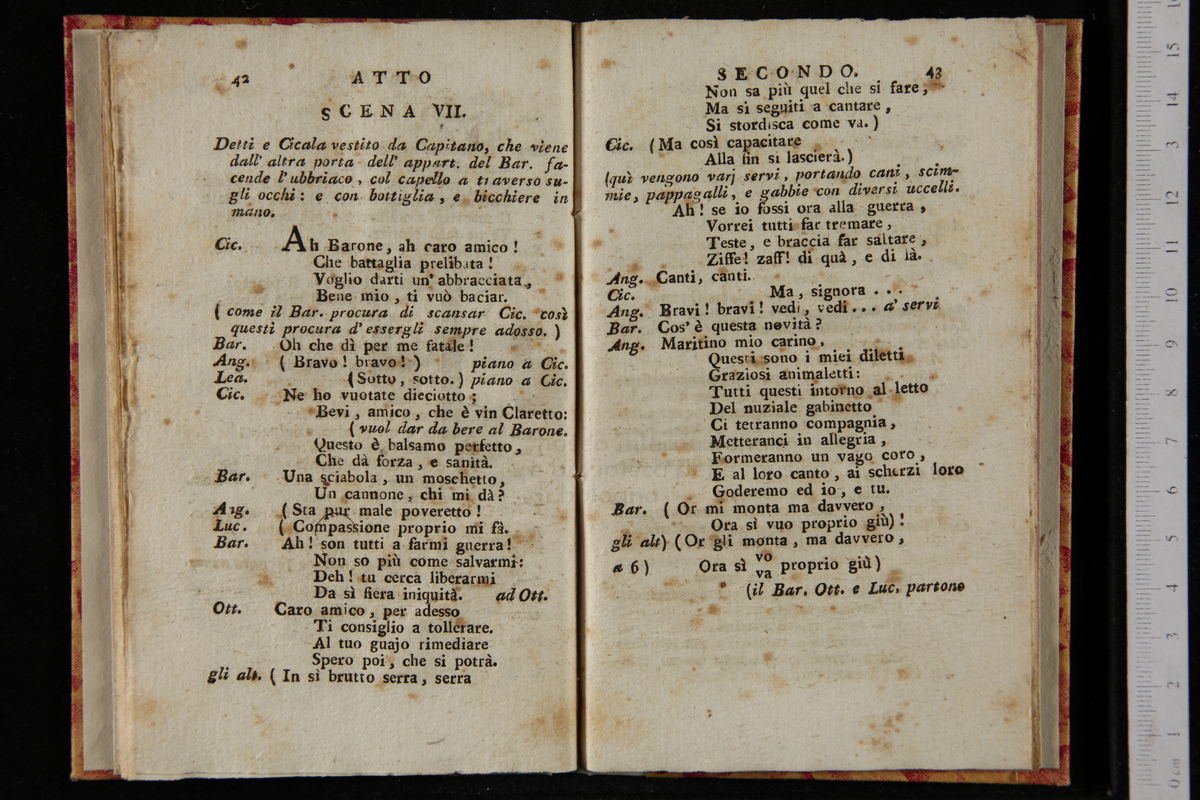 42 ATTO
SCENA VII.
Detti e Cicala vestito da Capitano, che viene
dall' altra porta dell' appart. del Bar. fa-
cende l'ubbriaco, col capello a traverso su-
gli occhi: e con bottiglia, e bicchiere in
mano.
Cic. Ah Barone, ah caro amico!
Che battaglia prelibata!
Voglio darti un' abbracciata,
Bene mio, ti vuò baciar.
( come il Bar. procura di scansar Cic. così
questi procura d' essergli sempre adosso. )
Bar. Oh che dì per me fatale!
Ang. ( Bravo! bravo! ) piano a Cic.
Lea. ( Sotto, sotto. ) piano a Cic.
Cic. Ne ho vuotate dieciotto;
Bevi, amico, che è vin Claretto:
( vuol dar da bere al Barone.
Questo è balsamo perfetto,
Che dà forza, e sanità.
Bar. Una sciabola, un moschetto,
Un cannone, chi mi dà?
Ang. ( Sta pur male poveretto!
Luc. ( Compassione proprio mi fà.
Bar. Ah! son tutti a farmi guerra!
Non so più come salvarmi:
Deh! tu cerca liberarmi
Da sì fiera iniquità. ad Ott.
Ott. Caro amico, per adesso
Ti consiglio a tollerare.
Al tuo guajo rimediare
Spero poi, che si potrà.
gli alt. ( In sì brutto serra, serra
SECONDO. 43
Non sa più quel che si fare,
Ma si seguiti a cantare,
Si stordisca come va. )
Cic. ( Ma così capacitare
Alla fin si lascierà. )
(quì vengono varj servi, portando cani, scim-
mie, pappagalli, e gabbie con diversi uccelli.
Ah! se io fossi ora alla guerra,
Vorrei tutti far tremare,
Teste, e braccia far saltare,
Ziffe! zaff! di quà, e di là.
Ang. Canti, canti.
Cic. Ma, signora . . .
Ang. Bravi! bravi! vedi, vedi... a' servi
Bar. Cos' è questa novità?
Ang. Maritino mio carino,
Questi sono i miei diletti
Graziosi animaletti:
Tutti questi intorno al letto
Del nuziale gabinetto
Ci tetranno compagnia,
Metteranci in allegria,
Formeranno un vago coro,
E al loro canto, ai scherzi loro
Goderemo ed io, e tu.
Bar. ( Or mi monta ma davvero,
Ora si vuo proprio giù)!
gli alt) (Or gli monta, ma davvero,
a 6) Ora sì vo proprio giù)
va
(il Bar. Ott. e Luc. partono